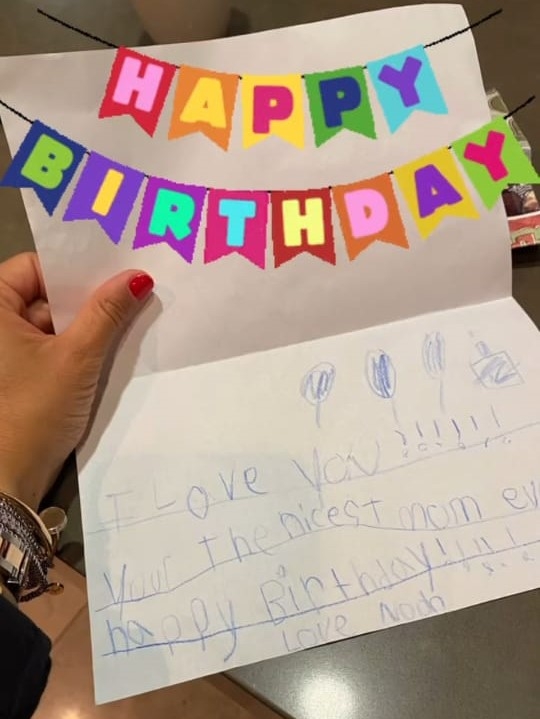 HAPPY
BIRTHDAY
I LOve you !!!!!!
your the nicest mom ev
happy Birthday!!!!!
Love Noah